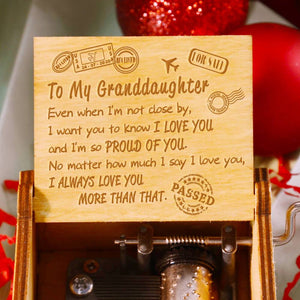 FOR SALE
To My Granddaughter
Even when I'm not close by,
I want you to know I LOVE YOU
and I'm so PROUD OF YOU.
No matter how much I say I love you,
I ALWAYS LOVE YOU
MORE THAN THAT.
PASSED